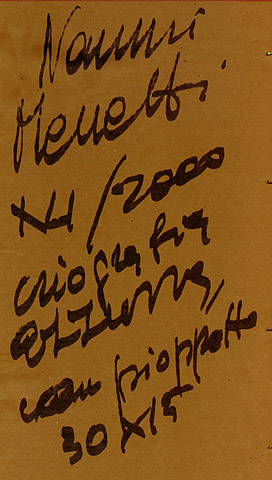 Nanni
Menetti
XI/2000
criografia
azzurra,
con pioppetto
30x15